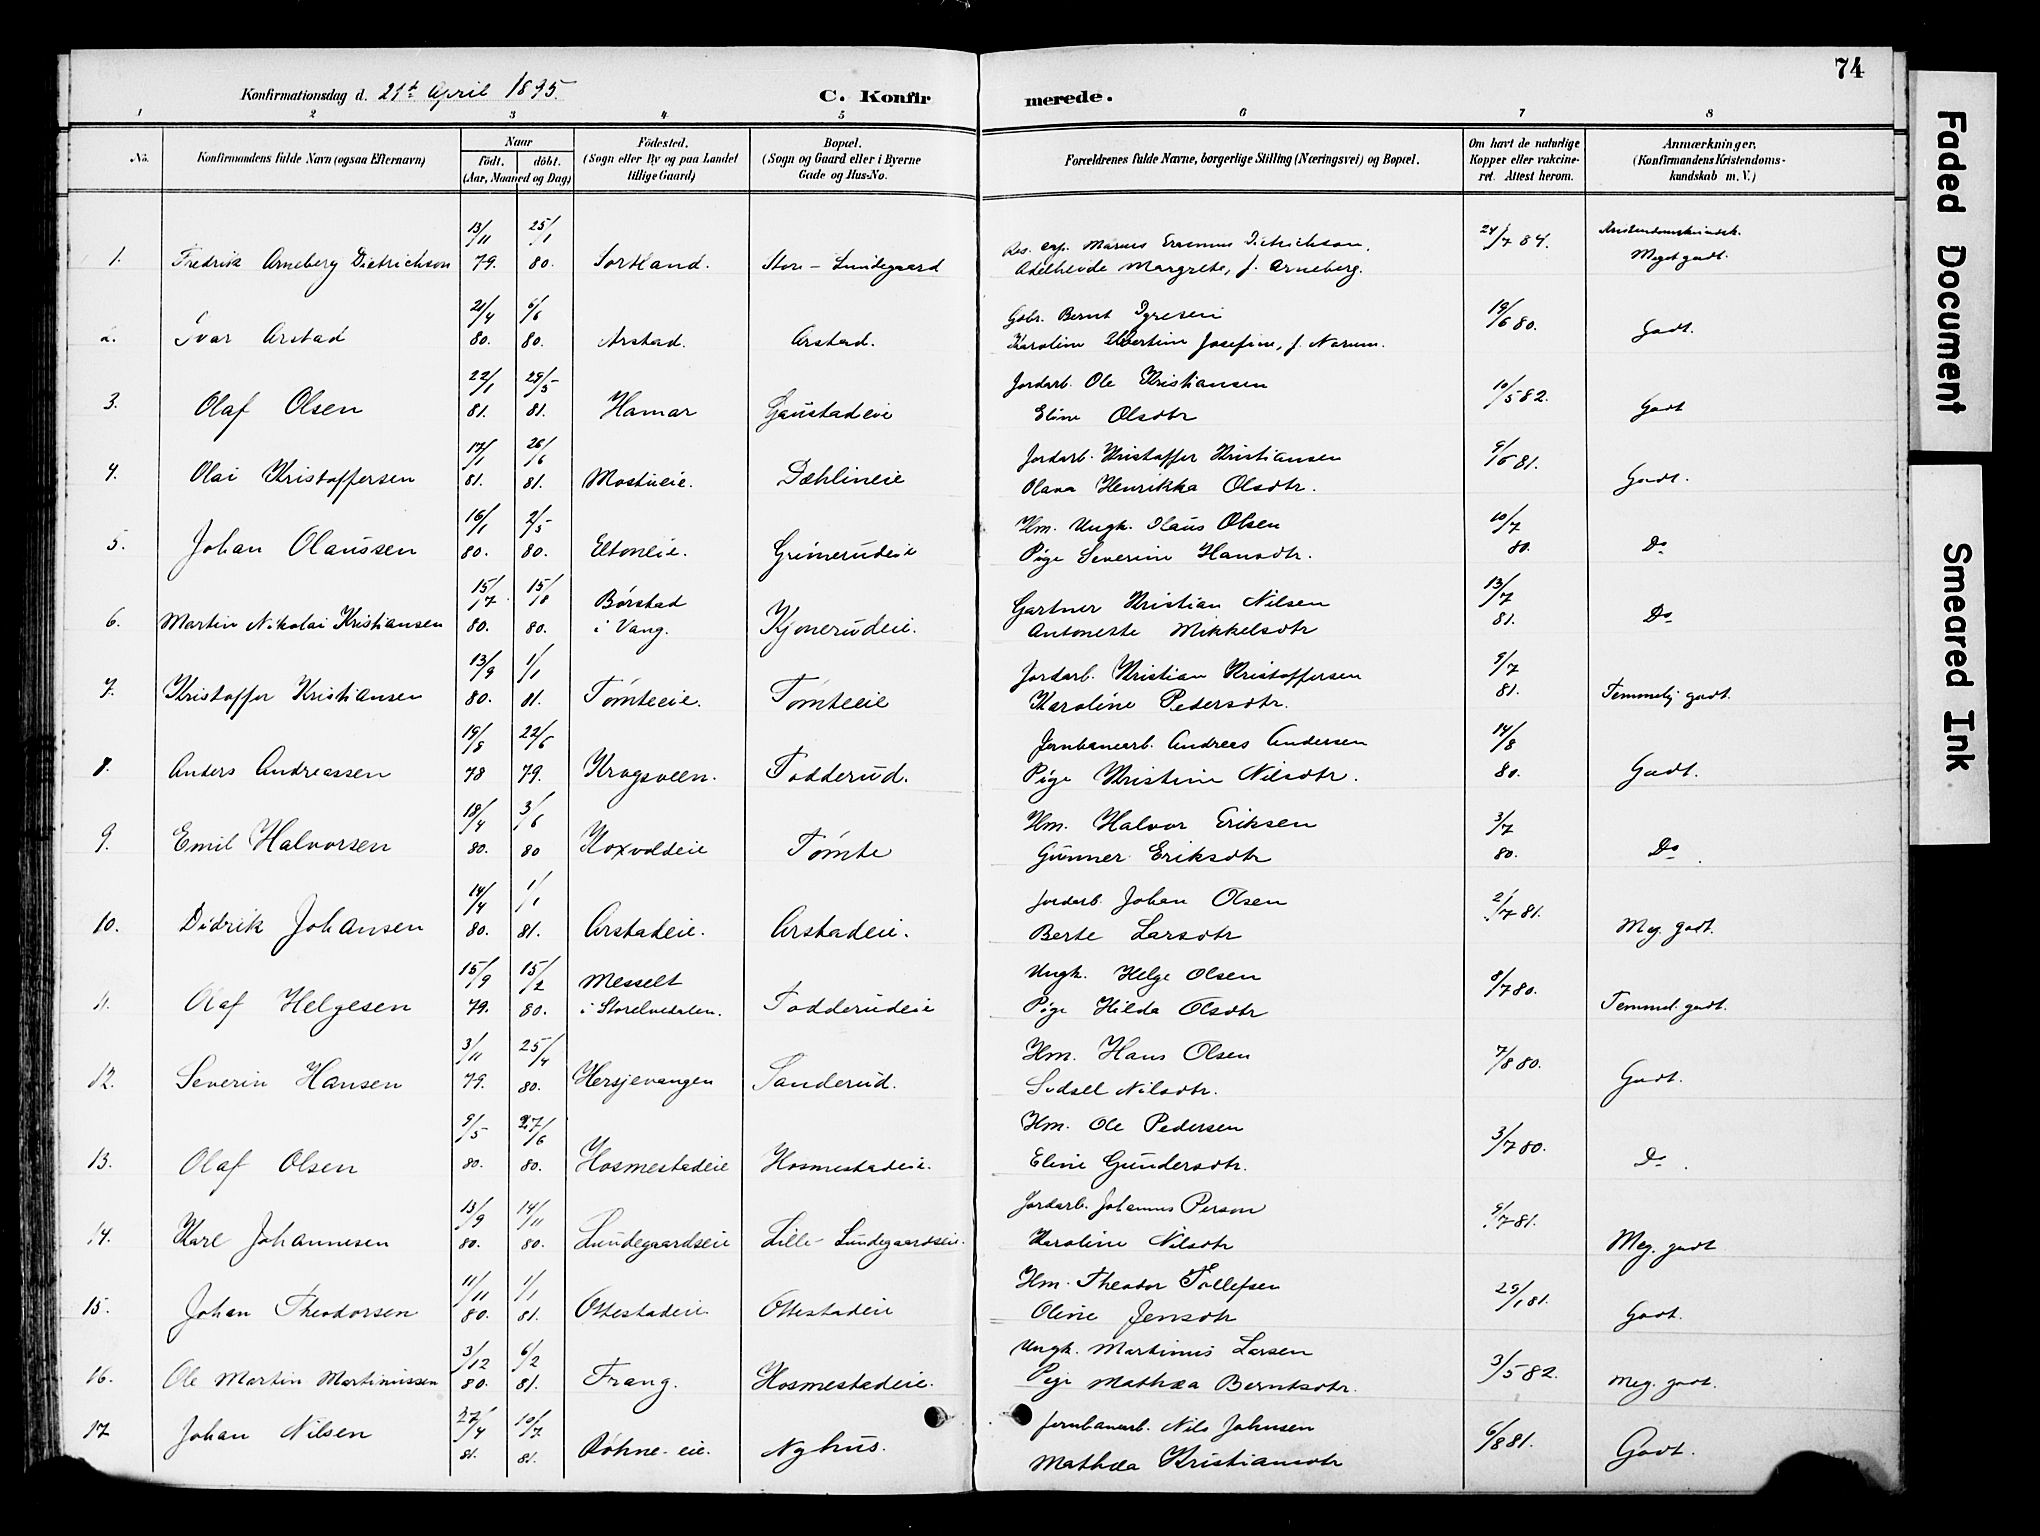 74
Konfirmationsdag d. 21de April 1895.
C. Konfirmerede.
1 2 3 4 5 6 7 8
No. Konfirmandens fulde Navn (ogsaa Efternavn) Naar født. døbt. (Aar, Maaned og Dag) Fødested. (Sogn eller By og paa Landet tillige Gaard) Bopæl. (Sogn og Gaard eller i Byerne Gade og Hus-No. Forældrenes fulde Navne, borgerlige Stilling (Næringsvei) og Bopæl. Om havt de naturlige Kopper eller vakcineret. Attest herom. Anmærkninger. (Konfirmandens Kristendomskundskab m. V.)
1. Fredrik Arneberg Dietrichson 13/11 79. 25/1 80. Sortland. Store-Lundegaard Res. cap. Marius Erasmus Dietrichson, 24/7 84. Kristendomskundsk.
Adelheide Margrete, f. Arneberg. Meget godt.
2. Ivar Arstad 21/4 80. 6/6 80. Arstad. Arstad. Gbr. Bernt 19/6 80. Godt.
Karoline Josefine, f. Narum.
3. Olaf Olsen 22/1 81. 29/5 81. Hamar Gaustadeie Jordarb. Ole Kristiansen 10/5 82. Godt
Eline Olsdtr
4. Olai Kristoffersen 17/1 81. 26/6 81. Mostueie. Dæhlineie Jordarb. Kristoffer Kristiansen 9/6 81. Godt.
Olava Henrikka Olsdtr.
5. Johan Olaussen 16/1 80. 2/5 80. Eltoneie. Grimerudeie Hm. Ungk. Olaus Olsen 10/7 80. Do
Pige Severine Hansdtr.
6. Martin Nikolai Kristiansen 15/7 80. 15/8 80. Børstad i Vang. Kjonerudeie. Gartner Kristian Nilsen 13/7 81. Do
Antonette Mikkelsdtr
7. Kristoffer Kristiansen 13/9 80. 1/1 81. Tømteeie. Tømteeie Jordarb. Kristian Kristoffersen 9/7 81. Temmelig godt.
Karoline Pedersdtr.
8. Anders Andreassen 19/8 78 22/6 79. Krogsveen. Todderud. Jernbanearb. Andreas Andersen 14/8 80. Godt.
Pige Kristine Nilsdtr.
9. Emil Halvorsen 18/4 80. 3/6 80 Koxvoldeie Tømte Hm. Halvor Eriksen 3/7 80. Do.
Gunner Eriksdtr
10. Didrik Johansen 14/4 80. 1/1 81. Arstadeie. Arstadeie. Jordarb. Johan Olsen 2/7 81. Meg. godt.
Berte Larsdtr
11. Olaf Helgesen 15/9 79. 15/2 80. Messelt i Storelvedalen. Todderudeie Ungk. Helge Olsen 8/7 80. Temmel. godt.
Pige Hilda Olsdtr
12. Severin Hansen 3/11 79. 25/4 80. Hersjevangen Sanderud. Hm. Hans Olsen 7/8 80. Godt.
Sidsel Nilsdtr.
13. Olaf Olsen 9/5 80. 27/6 80. Hosmestadeie Hosmestadeie. Hm. Ole Pedersen 3/7 80. Do.
Eline Gundersdtr.
14. Karl Johannesen 13/9 80. 14/11 80. Lundegaardseie Lille-Lundegaardseie. Jordarb. Johannes Person 9/7 81. Meg. godt
Karoline Nilsdtr
15. Johan Theodorsen 11/11 80. 1/1 81. Ottestadeie. Ottestadeie Hm. Theodor Tollefsen 29/1 81. Godt.
Oline Jensdtr
16. Ole Martin Martinussen 3/12 80. 6/2 81. Frang. Hosmestadeie. Ungk. Martinus Larsen 3/5 82. Meg. godt.
Pige Mathea Berntsdtr.
17 Johan Nilsen 27/4 81. 10/7 81. Røhne-eie. Nyhus. Jernbanearb. Nils Johnsen 6/8 81. Godt.
Mathea Kristiansdtr
Faded Document
Smeared Ink